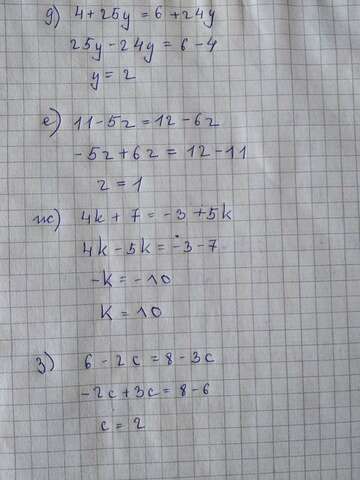 д) 4+25y=6+24y
25y-24y=6-4
y=2
е) 11-5z=12-6z
-5z+6z=12-11
z=1
ж) 4k+7=-3+5k
4k-5k=-3-7
-k=-10
k=10
з) 6-2c=8-3c
-2c+3c=8-6
c=2